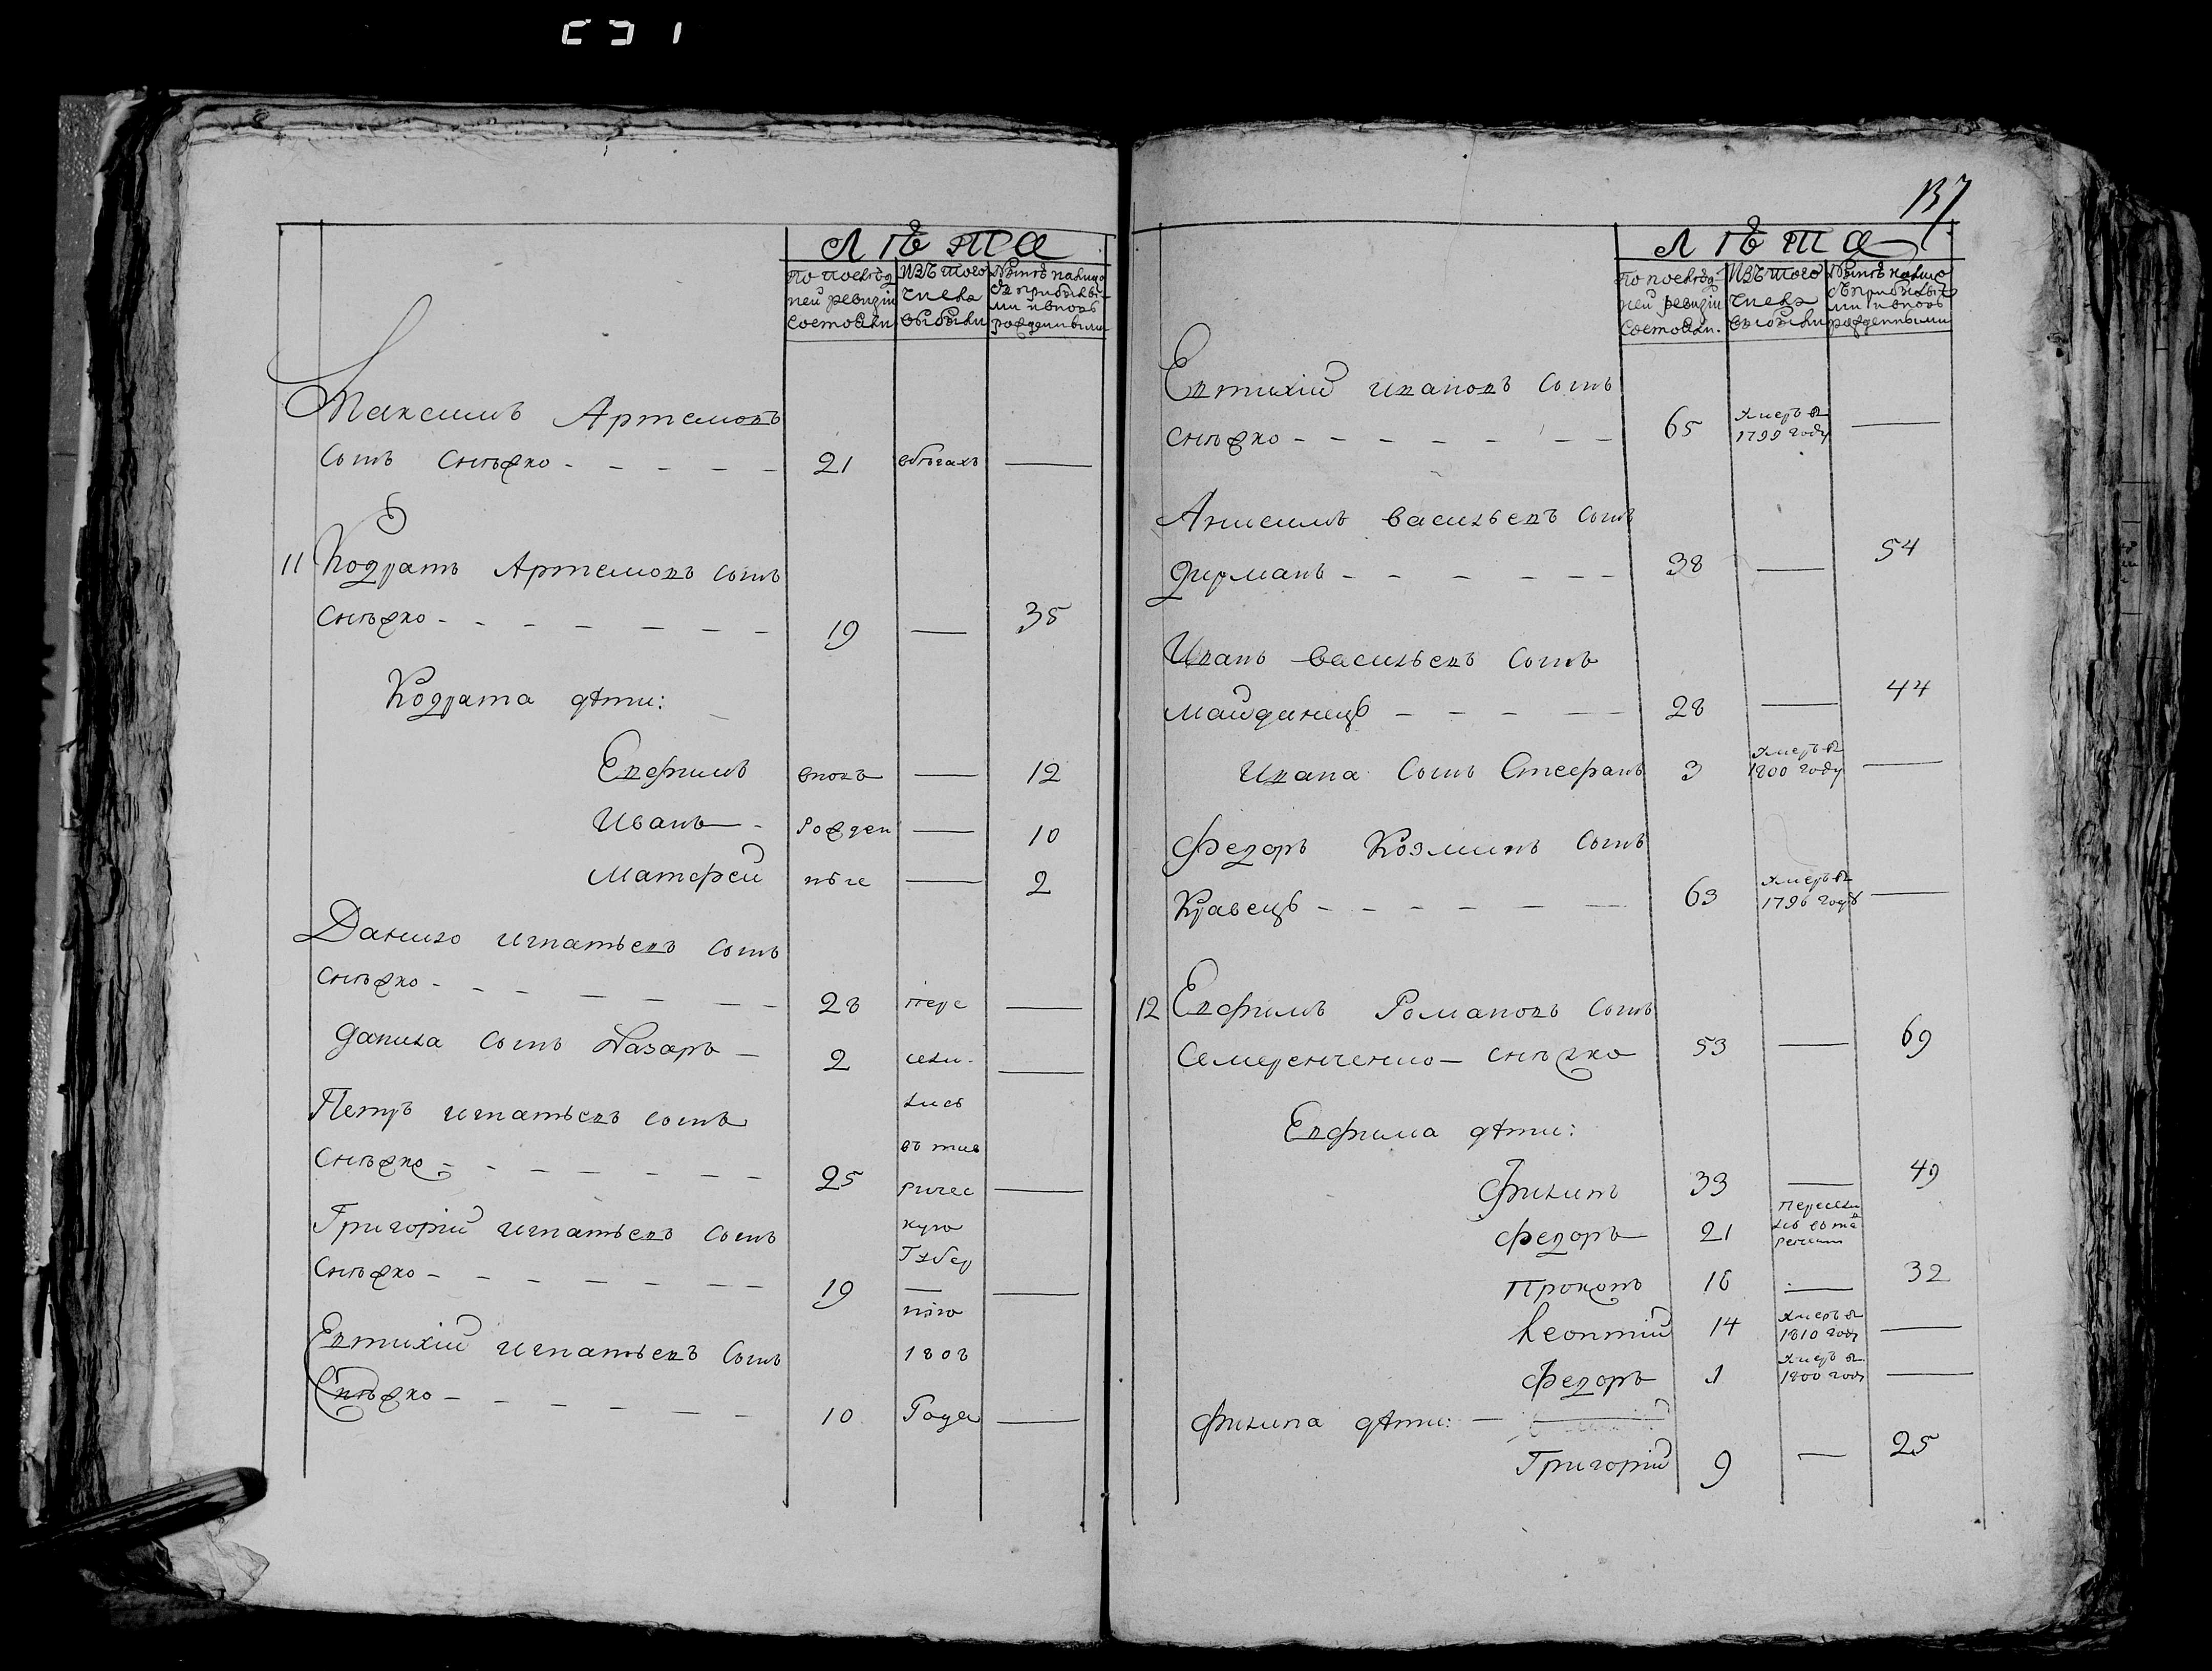 ЛѢТА
По послѣд
ней ревизіи
состояли
Изъ того
числа
выбыли
Нынѣ на лицо
съ прибывши
ми и вновь
рожденными
Максимъ Артемовъ
сынъ Снѣжко - - - - - 21 вбѣгахъ —
11 Кодратъ Артемовъ сынъ
Снѣжко - - - - - - - 19 — 35
Кодрата дѣти:
Евфимъ вновь — 12
Иванъ - рожден — 10
Матфей ные — 2
Данило игнатьевъ сынъ
Снѣжко - - - - - - - 28 пере —
Данила сынъ Назаръ - 2 сели- —
Петръ игнатьевъ сынъ лись
въ тав
Снѣжко - - - - - - - 25 ричес —
Григорій игнатьевъ сынъ кую
Губер
Снѣжко - - - - - - - 19 — —
нію
Евтихій игнатьевъ сынъ 1808
Снѣжко - - - - - - - 10 Года —
137
ЛѢТА
По послѣд
ней ревизіи
состояли.
Изъ того
числа
выбыли
Нынѣ на лицо
съ прибывши
ми и вновь
рожденными
Евтихій ивановъ сынъ
Снѣжко - - - - - - - 65 Умеръ в 1799 году —
Анисимъ васильевъ сынъ
Дирманъ - - - - - - 38 — 54
Иванъ васильевъ сынъ
Майданецъ - - - - - 28 — 44
Ивана сынъ Стефанъ 3 Умеръ в 1800 году —
Федоръ Козминъ сынъ
Кравецъ - - - - - - 63 Умеръ в 1796 году —
12 Евфимъ Романовъ сынъ
Семеренченко - Снѣжко 53 — 69
Евфима дѣти:
Филипъ 33 — 49
Федоръ 21 Пересели
лсь въ та
Прокопъ 16 — 32
Леонтій 14 Умеръ в 1810 году —
Федоръ 1 Умеръ в 1800 году —
Филипа дѣти: —
Григорій 9 — 25